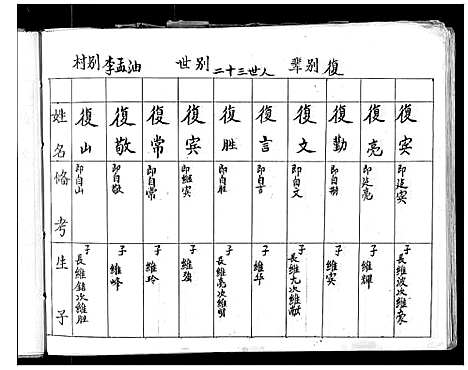 村别 李孟油 世别 二十三世人 辈别 復
姓名 復山 復敬 復常 復宾 復胜 復言 復文 復勤 復亮 復宾
俻考 即自山 即自敬 即自常 即継宾 即自胜 即自言 即自文 即自勤 即延亮 即延宾
生子 子長維銘次維胜 子維峰 子維玲 子維強 子長維亮次維明 子維华 子長維尢次維献 子維宾 子維耀 子長維波次維豪